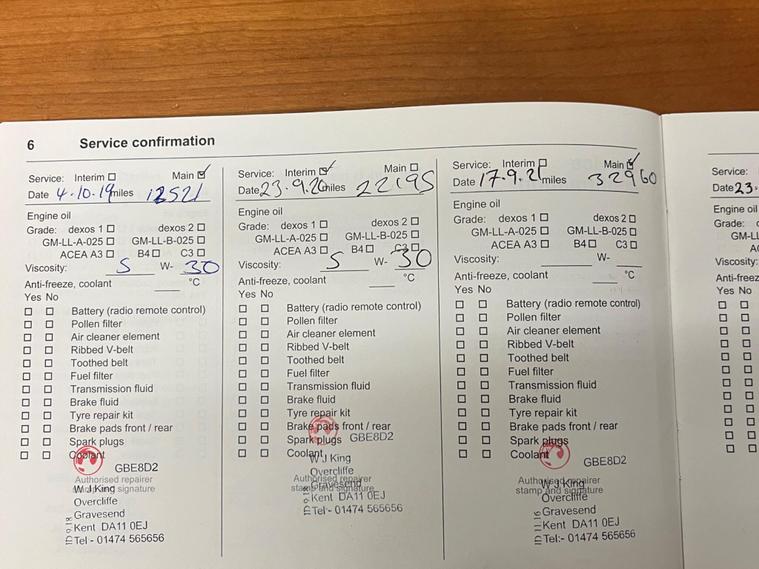 6 Service confirmation
Service: Interim Main
Date 4.10.19 miles 12521
Engine oil
Grade: dexos 1 dexos 2
GM-LL-A-025 GM-LL-B-025
ACEA A3 B4 C3
Viscosity: 5 W- 30
Anti-freeze, coolant °C
Yes No
Battery (radio remote control)
Pollen filter
Air cleaner element
Ribbed V-belt
Toothed belt
Fuel filter
Transmission fluid
Brake fluid
Tyre repair kit
Brake pads front / rear
Spark plugs
Coolant
GBE8D2
Authorised repairer
stamp and signature
W J King
Overcliffe
Gravesend
Kent DA11 0EJ
Tel - 01474 565656
Service: Interim Main
Date 23.9.20 miles 22195
Engine oil
Grade: dexos 1 dexos 2
GM-LL-A-025 GM-LL-B-025
ACEA A3 B4 C3
Viscosity: 5 W- 30
Anti-freeze, coolant °C
Yes No
Battery (radio remote control)
Pollen filter
Air cleaner element
Ribbed V-belt
Toothed belt
Fuel filter
Transmission fluid
Brake fluid
Tyre repair kit
Brake pads front / rear
Spark plugs GBE8D2
Coolant
W J King
Overcliffe
Authorised repairer
stamp and signature
Gravesend
Kent DA11 0EJ
Tel - 01474 565656
Service: Interim Main
Date 17.9.21 miles 32960
Engine oil
Grade: dexos 1 dexos 2
GM-LL-A-025 GM-LL-B-025
ACEA A3 B4 C3
Viscosity: W-
Anti-freeze, coolant °C
Yes No
Battery (radio remote control)
Pollen filter
Air cleaner element
Ribbed V-belt
Toothed belt
Fuel filter
Transmission fluid
Brake fluid
Tyre repair kit
Brake pads front / rear
Spark plugs
Coolant
GBE8D2
Authorised repairer
stamp and signature
W J King
Overcliffe
Gravesend
Kent DA11 0EJ
Tel:- 01474 565656
Service:
Date 23.
Engine oil
Grade:
Viscosity:
Anti-freeze
Yes No